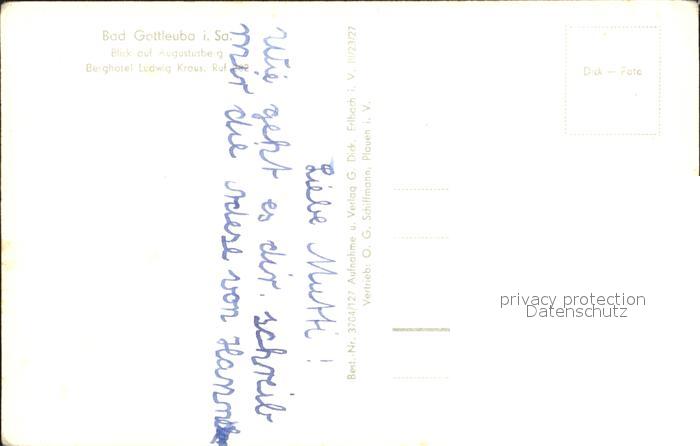 Bad Gottleuba i. Sa.
Blick auf Augustusberg
Berghotel Ludwig Kraus, Ruf
Liebe Mutti!
Wie geht es dir. schreib
mir die Adese von Hann
Best.-Nr. 3704/127 Aufnahme u. Verlag G. Dick, Erlbach i. V. III/23/27
Vertrieb: O. G. Schiffmann, Plauen i. V.
Dick — Foto
privacy protection
Datenschutz